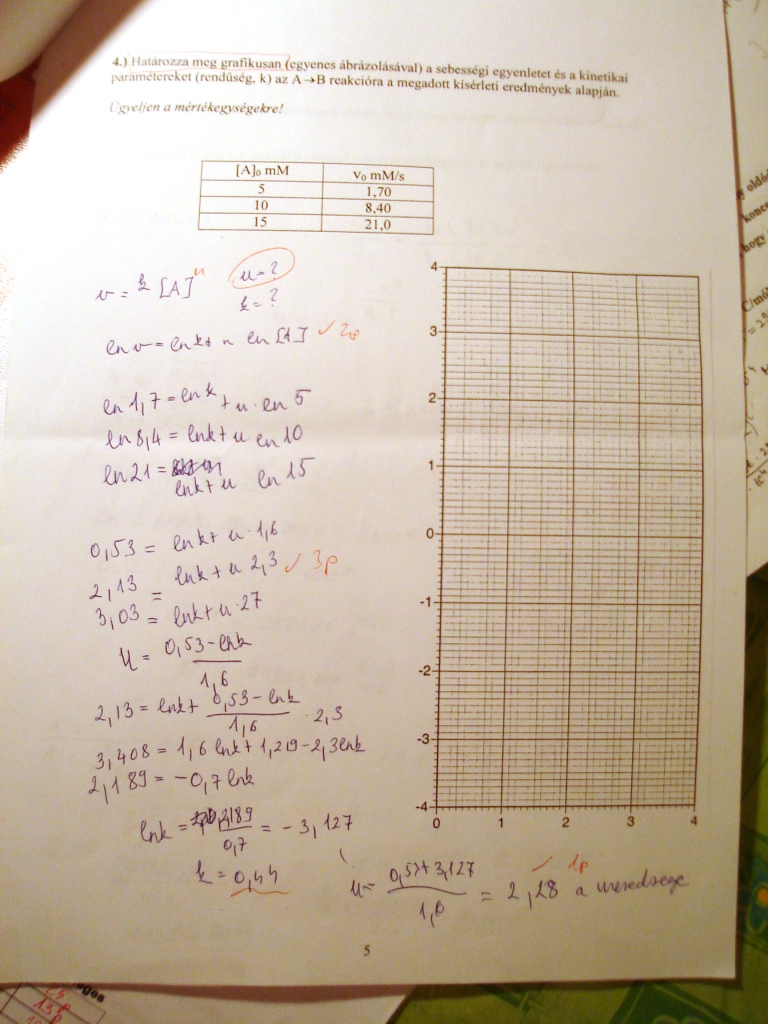 4.) Határozza meg grafikusan (egyenes ábrázolásával) a sebességi egyenletet és a kinetikai
paramétereket (rendűség, k) az A→B reakcióra a megadott kísérleti eredmények alapján.
Ügyeljen a mértékegységekre!
[A]₀ mM v₀ mM/s
5 1,70
10 8,40
15 21,0
v = k [A]ⁿ n = ?
k = ?
ln v = ln k + n ln [A] ✓ 2p
ln 1,7 = ln k + n · ln 5
ln 8,4 = ln k + n ln 10
ln 21 = ln k + n ln 15
0,53 = ln k + n · 1,6
2,13 = ln k + n 2,3 ✓ 3p
3,03 = ln k + n · 27
n = 0,53 - ln k / 1,6
2,13 = ln k + 0,53 - ln k / 1,6 · 2,3
3,408 = 1,6 ln k + 1,219 - 2,3 ln k
2,189 = -0,7 ln k
ln k = 2,189 / 0,7 = -3,127
k = 0,44
n = 0,53 + 3,127 / 1,6 = 2,28 a meredsége ✓ 1p
4
3
2
1
0
-1
-2
-3
-4
0 1 2 3 4
5